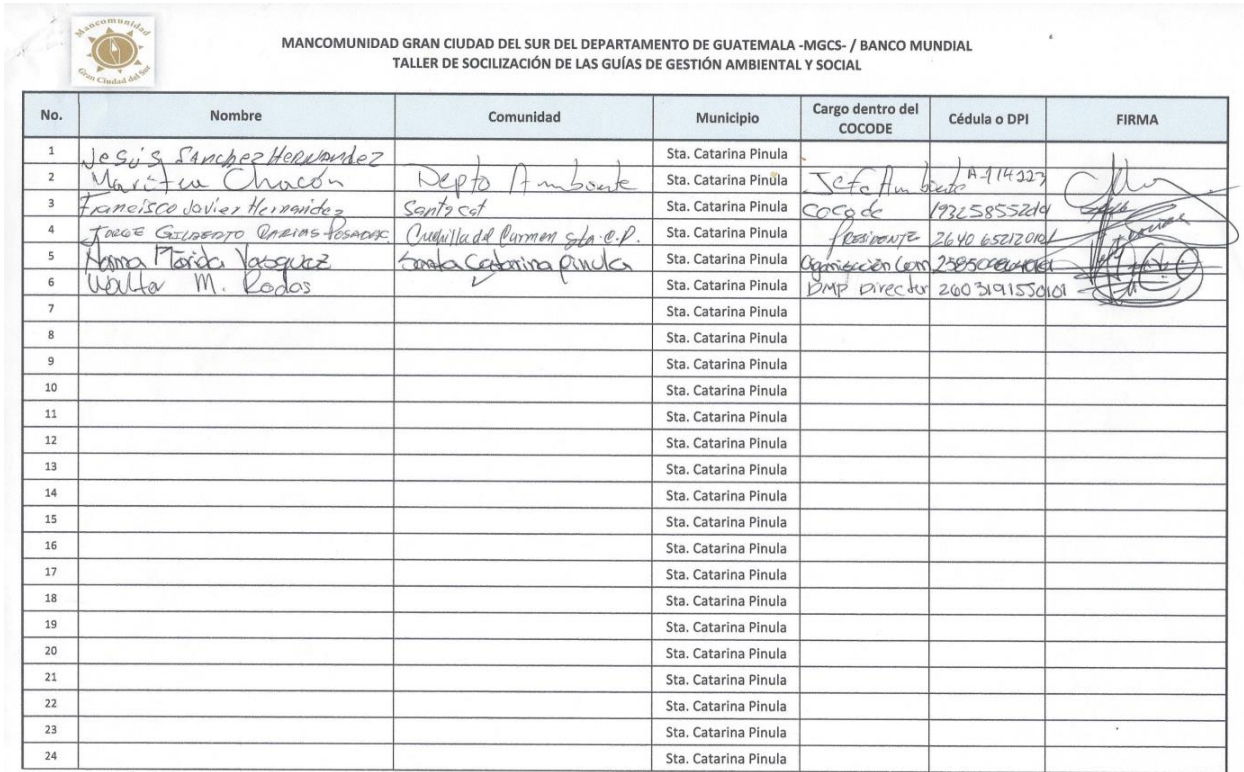 Mancomunidad
Gran Ciudad del Sur
MANCOMUNIDAD GRAN CIUDAD DEL SUR DEL DEPARTAMENTO DE GUATEMALA -MGCS- / BANCO MUNDIAL
TALLER DE SOCILIZACIÓN DE LAS GUÍAS DE GESTIÓN AMBIENTAL Y SOCIAL
No. Nombre Comunidad Municipio Cargo dentro del COCODE Cédula o DPI FIRMA
1 Jesús Sánchez Hernandez Sta. Catarina Pinula
2 Chacón Depto Ambiente Sta. Catarina Pinula Jefe Ambiente
3 Francisco Javier Hernandez Santa cat Sta. Catarina Pinula Cocode
4 JORGE GILBERTO Cuchilla del Carmen Sta. C.P. Sta. Catarina Pinula PRESIDENTE 2640 65212 0101
5 Vasquez Santa Catarina Pinula Sta. Catarina Pinula
6 Walter M. Rodas Sta. Catarina Pinula DMP Director 2603191550101
7 Sta. Catarina Pinula
8 Sta. Catarina Pinula
9 Sta. Catarina Pinula
10 Sta. Catarina Pinula
11 Sta. Catarina Pinula
12 Sta. Catarina Pinula
13 Sta. Catarina Pinula
14 Sta. Catarina Pinula
15 Sta. Catarina Pinula
16 Sta. Catarina Pinula
17 Sta. Catarina Pinula
18 Sta. Catarina Pinula
19 Sta. Catarina Pinula
20 Sta. Catarina Pinula
21 Sta. Catarina Pinula
22 Sta. Catarina Pinula
23 Sta. Catarina Pinula
24 Sta. Catarina Pinula